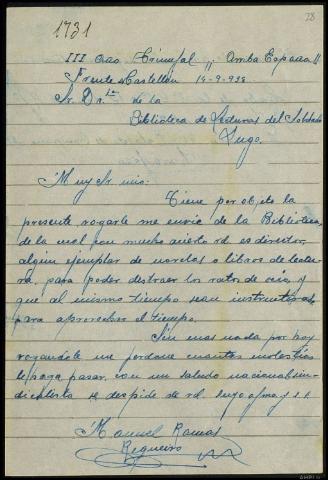 1731
28
III Año Triunfal ¡¡ Arriba España!!
Frente Castellón 14-9-938
Sr. Dr. de la
Biblioteca de Lecturas del Soldado
Lugo.
Muy Sr. mio:
Tiene por objeto la
presente rogarle me envie de la Biblioteca,
de la cual con mucho acierto vd es director,
algun ejemplar de novelas o libros de lectu-
ra, para poder distraer los ratos de ocio, y
que al mismo tiempo sean instructivos,
para aprovechar el tiempo.
Sin mas nada por hoy
rogandole me perdone cuantas molestias
le haga pasar, con un saludo nacional-sin-
dicalista se despide de vd. suyo afmo y s.s.
Manuel Ramos
Regueiro